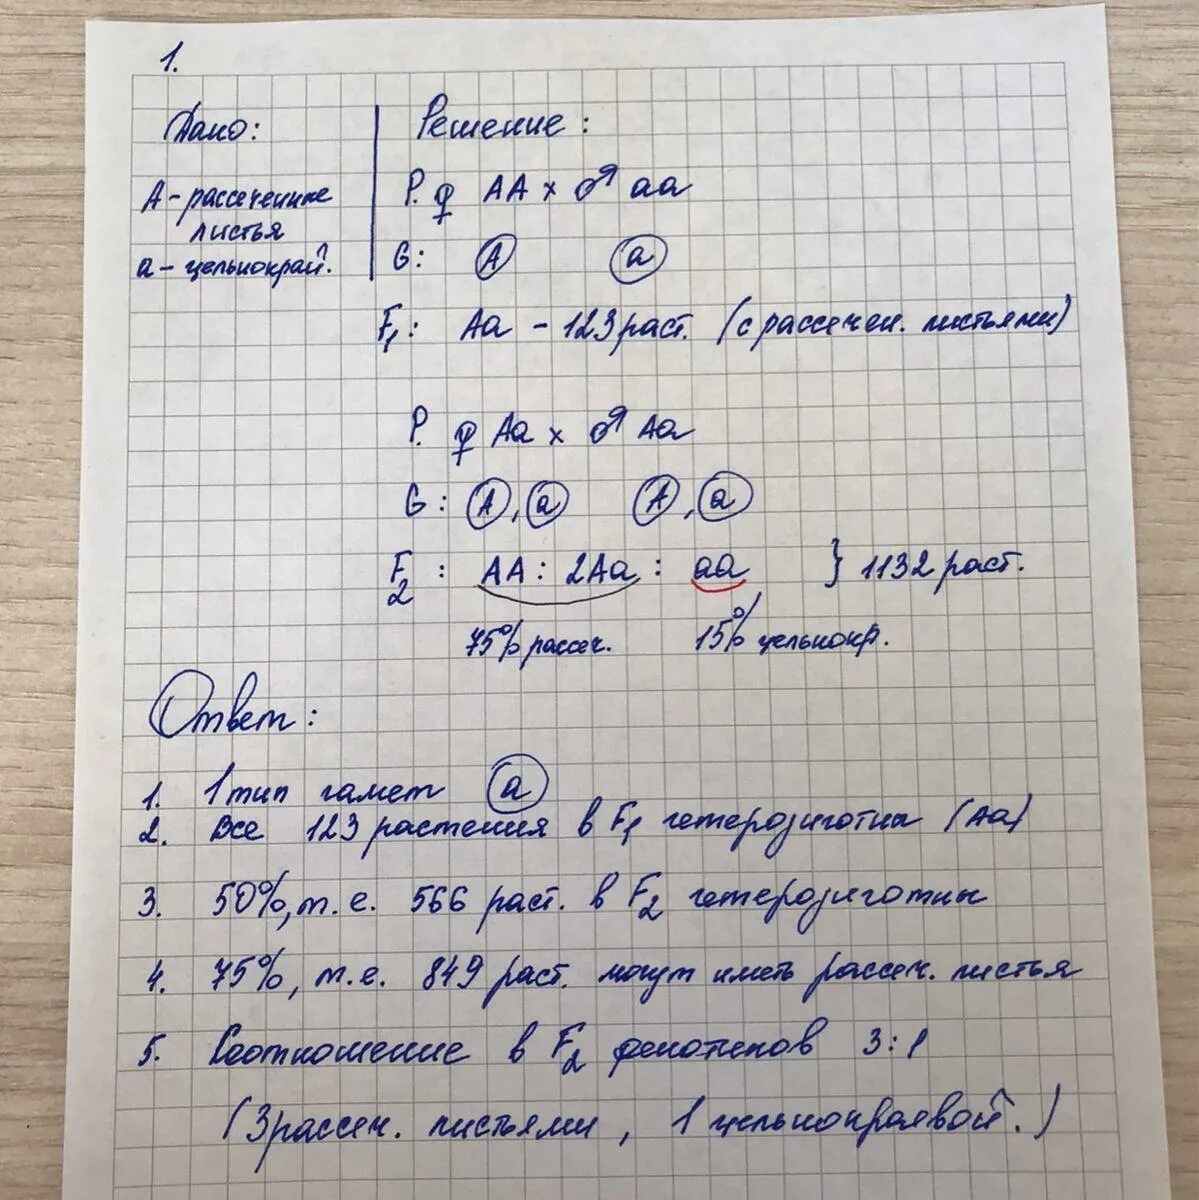 1.
Дано:
Решение:
А - рассеченные
листья
а - цельнокрай.
P. ♀ АА × ♂ аа
G: А а
F₁: Аа - 123 раст. (с рассечен. листьями)
P. ♀ Аа × ♂ Аа
G: А, а А, а
F₂: АА : 2Аа : аа } 1132 раст.
75% рассеч. 15% цельнокр.
Ответ:
1. 1 тип гамет а
2. Все 123 растения в F₁ гетерозиготны (Аа)
3. 50%, т.е. 566 раст. в F₂ гетерозиготны
4. 75%, т.е. 849 раст. могут иметь рассеч. листья
5. Соотношение в F₂ фенотипов 3:1
(3 рассеч. листьями, 1 цельнокраевой.)